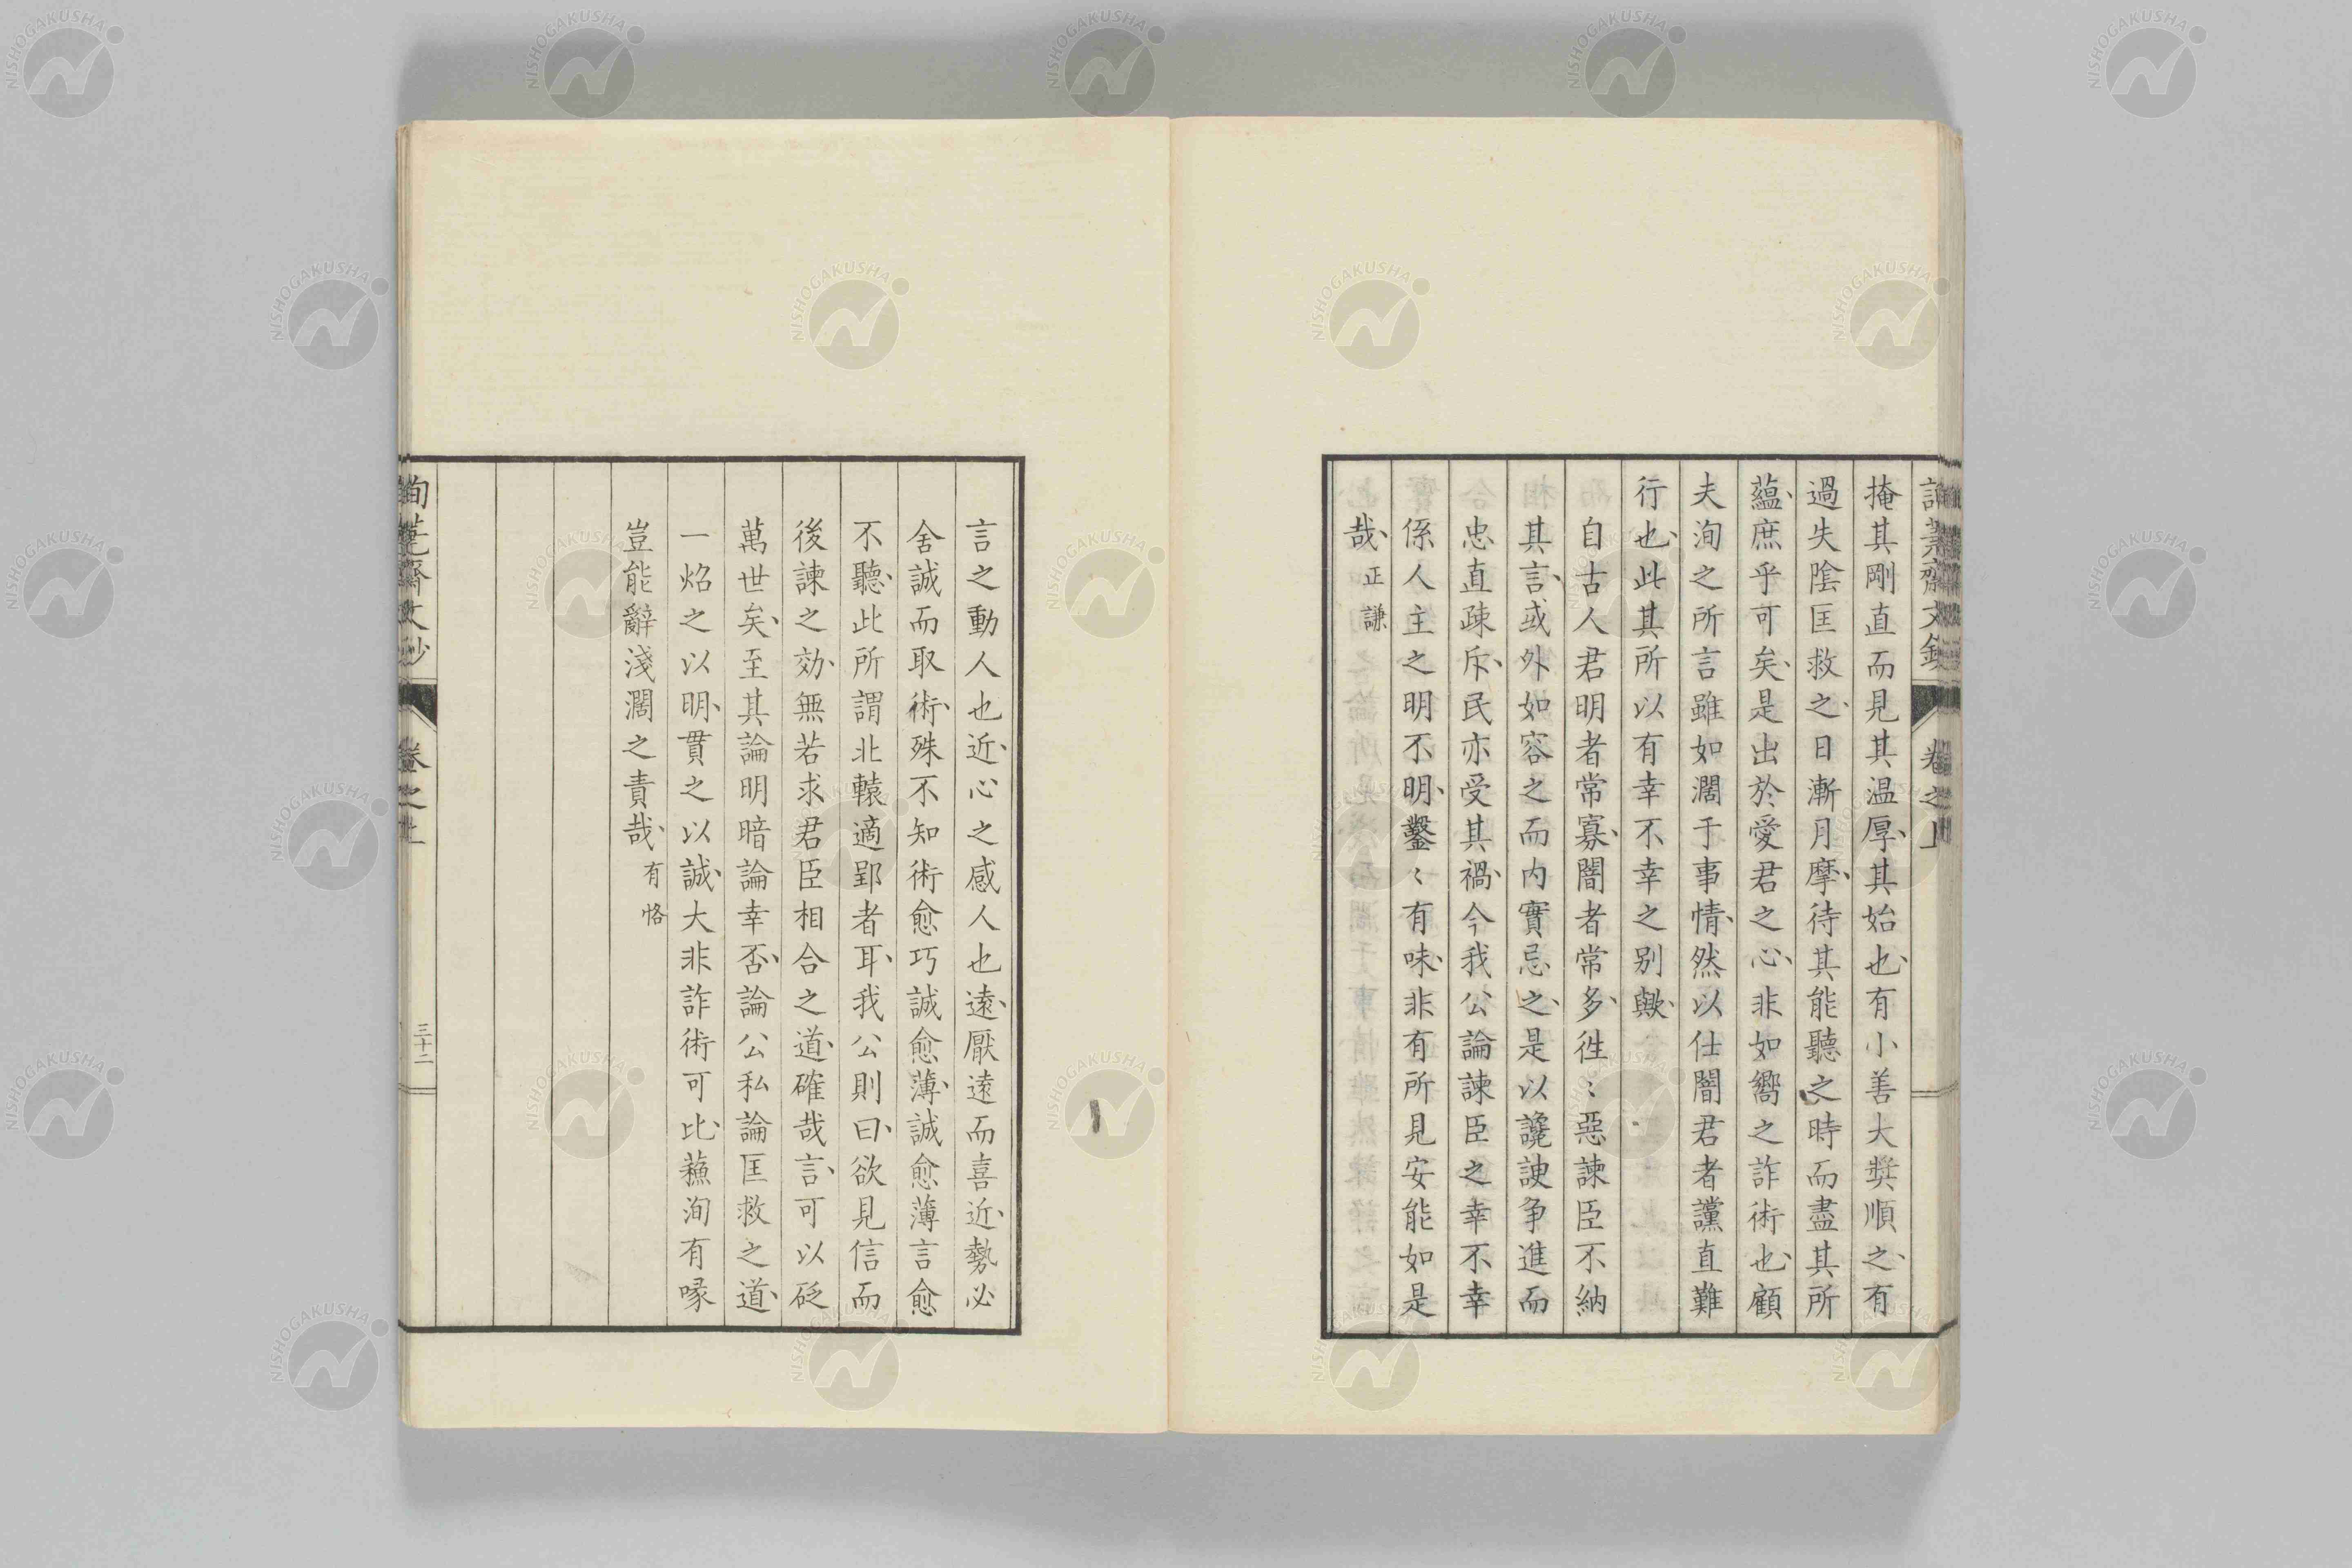 掩其剛直而見其温厚、其始也、有小善大奬順之、有
過失陰匡救之、日漸月摩、待其能聽之時而盡其所
蘊、庶乎可矣、是出於愛君之心、非如嚮之詐術也、顧
夫洵之所言雖如濶于事情、然以仕闇君者讜直難
行也、此其所以有幸不幸之别歟、
自古人君明者常寡、闇者常多、徃〻惡諫臣不納
其言、或外如容之而内實忌之、是以讒諛争進而
忠直疎斥、民亦受其禍、今我公論諫臣之幸不幸
係人主之明不明、鑿〻有味、非有所見安能如是
哉、正謙
言之動人也近、心之感人也遠、厭遠而喜近、勢必
舍誠而取術、殊不知術愈巧誠愈薄、誠愈薄言愈
不聽、此所謂北轅適郢者耳、我公則曰、欲見信而
後諫之効、無若求君臣相合之道、確哉言、可以砭
萬世矣、至其論明暗論幸否、論公私論匡救之道、
一焰之以明、貫之以誠、大非詐術可比、蘓洵有喙
豈能辭淺濶之責哉、有恪
卷之上
三十二
NISHOGAKUSHA